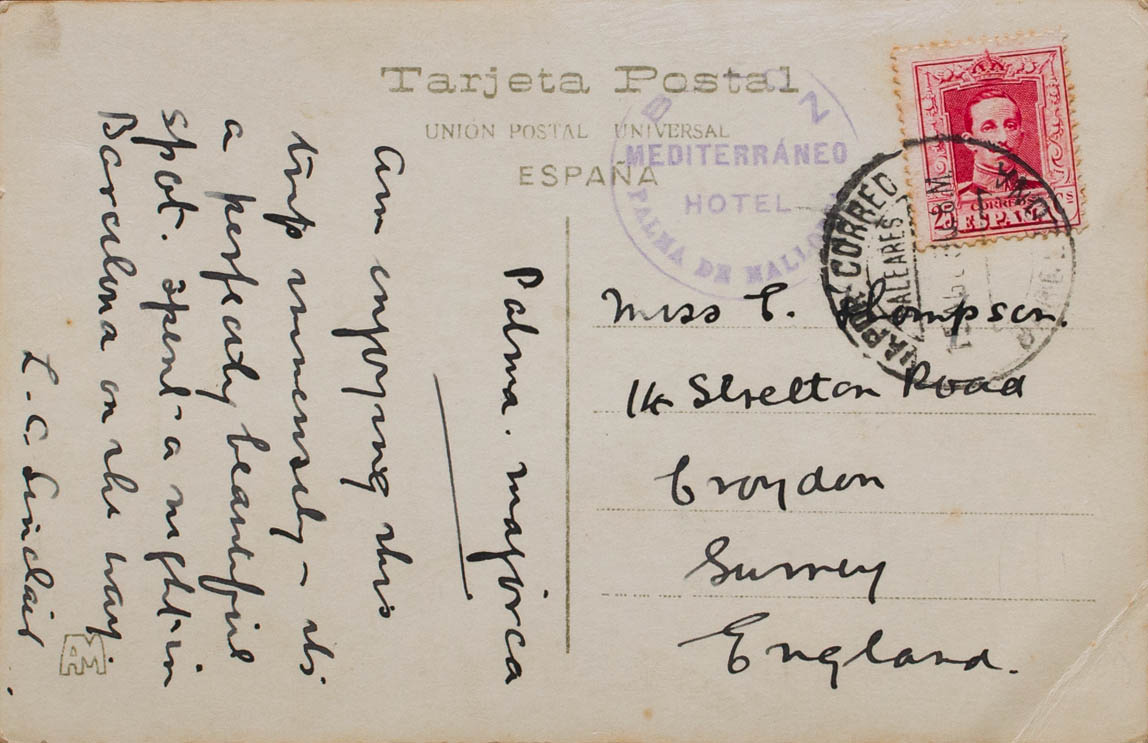 Tarjeta Postal
UNIÓN POSTAL UNIVERSAL
ESPAÑA
MEDITERRÁNEO
HOTEL
PALMA DE MALLO
CORREO
BALEARES
25 CORREOS Cs
ESPAÑA
Palma. Majorca
Am enjoying this
trip immensely - its
a perfectly beautiful
spot. Spent a night in
Barcelona on the way.
L. C. Sinclair
Miss C. Thompson.
14 Stretton Road
Croydon
Surrey
England.
AM